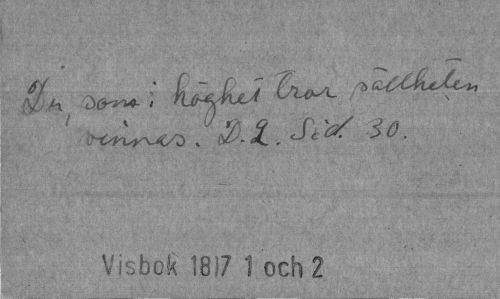 Du, som i höghet tror sällheten
vinnas. D. 2. Sid. 30.
Visbok 1817 1 och 2